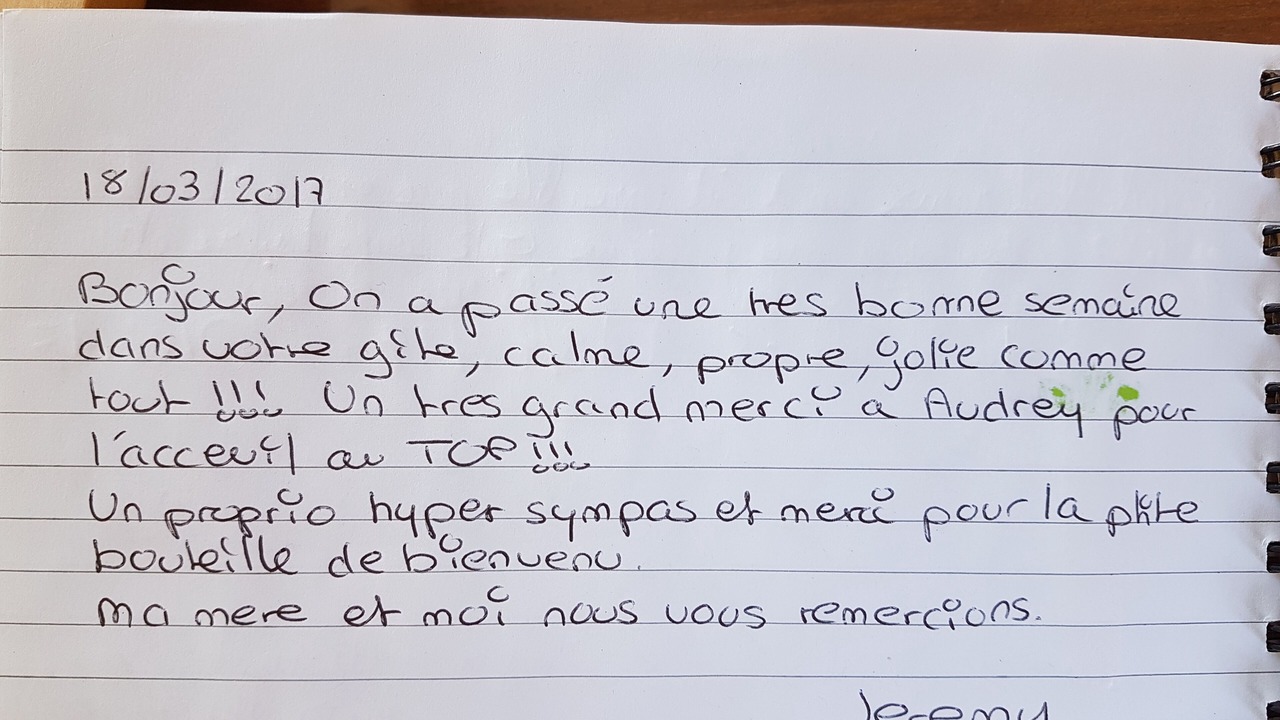 18/03/2017
Bonjour, On a passé une tres bonne semaine
dans votre gîte, calme, propre, jolie comme
tout !!! Un tres grand merci a Audrey pour
l'acceuil au TOP !!!
Un proprio hyper sympas et merci pour la ptite
bouteille de bienvenu.
Ma mere et moi nous vous remercions.
Jeremy